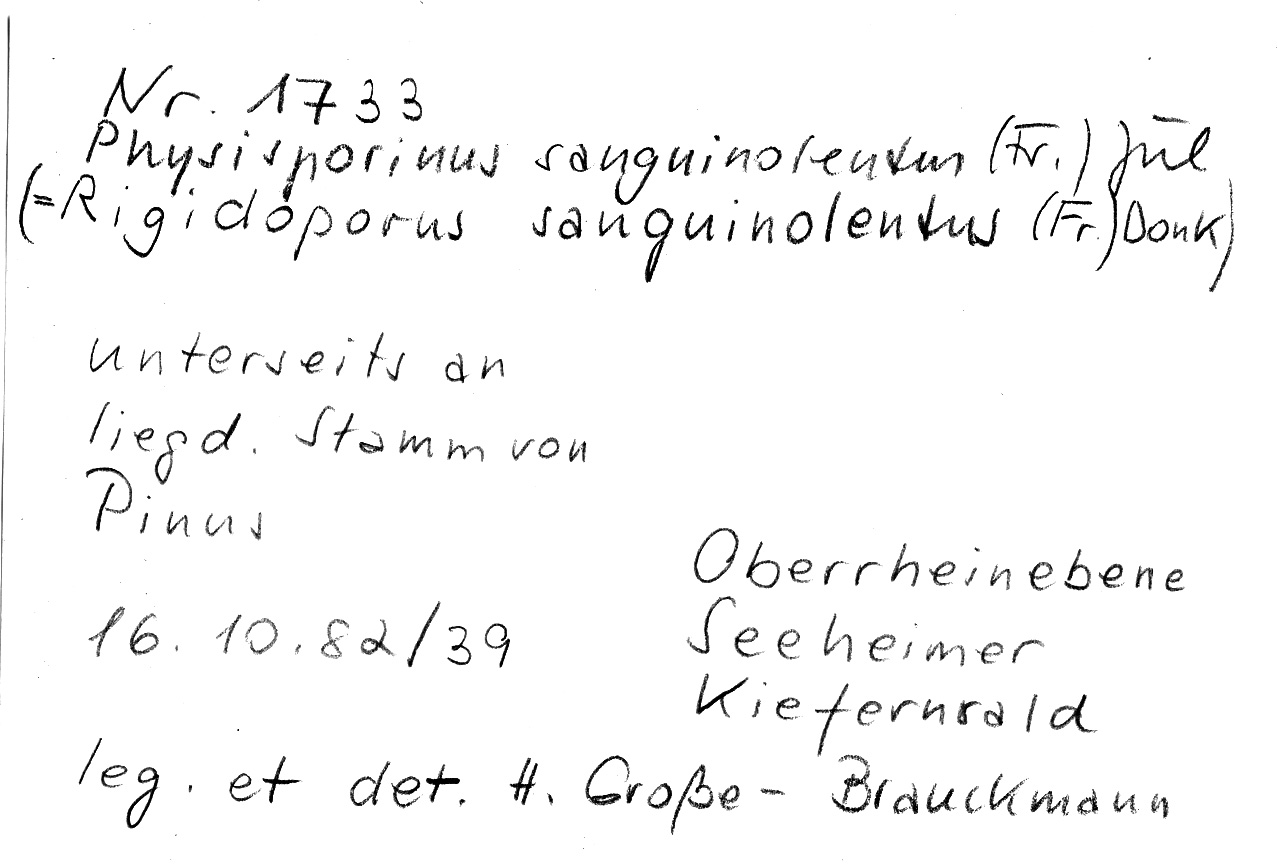 Nr. 1733
Physisporinus sanguinolentus (Fr.) Jül
(=Rigidoporus sanguinolentus (Fr.) Donk)
unterseits an
liegd. Stamm von
Pinus
16.10.82/39
Oberrheinebene
Seeheimer
Kiefernwald
leg. et det. H. Große-Brauckmann